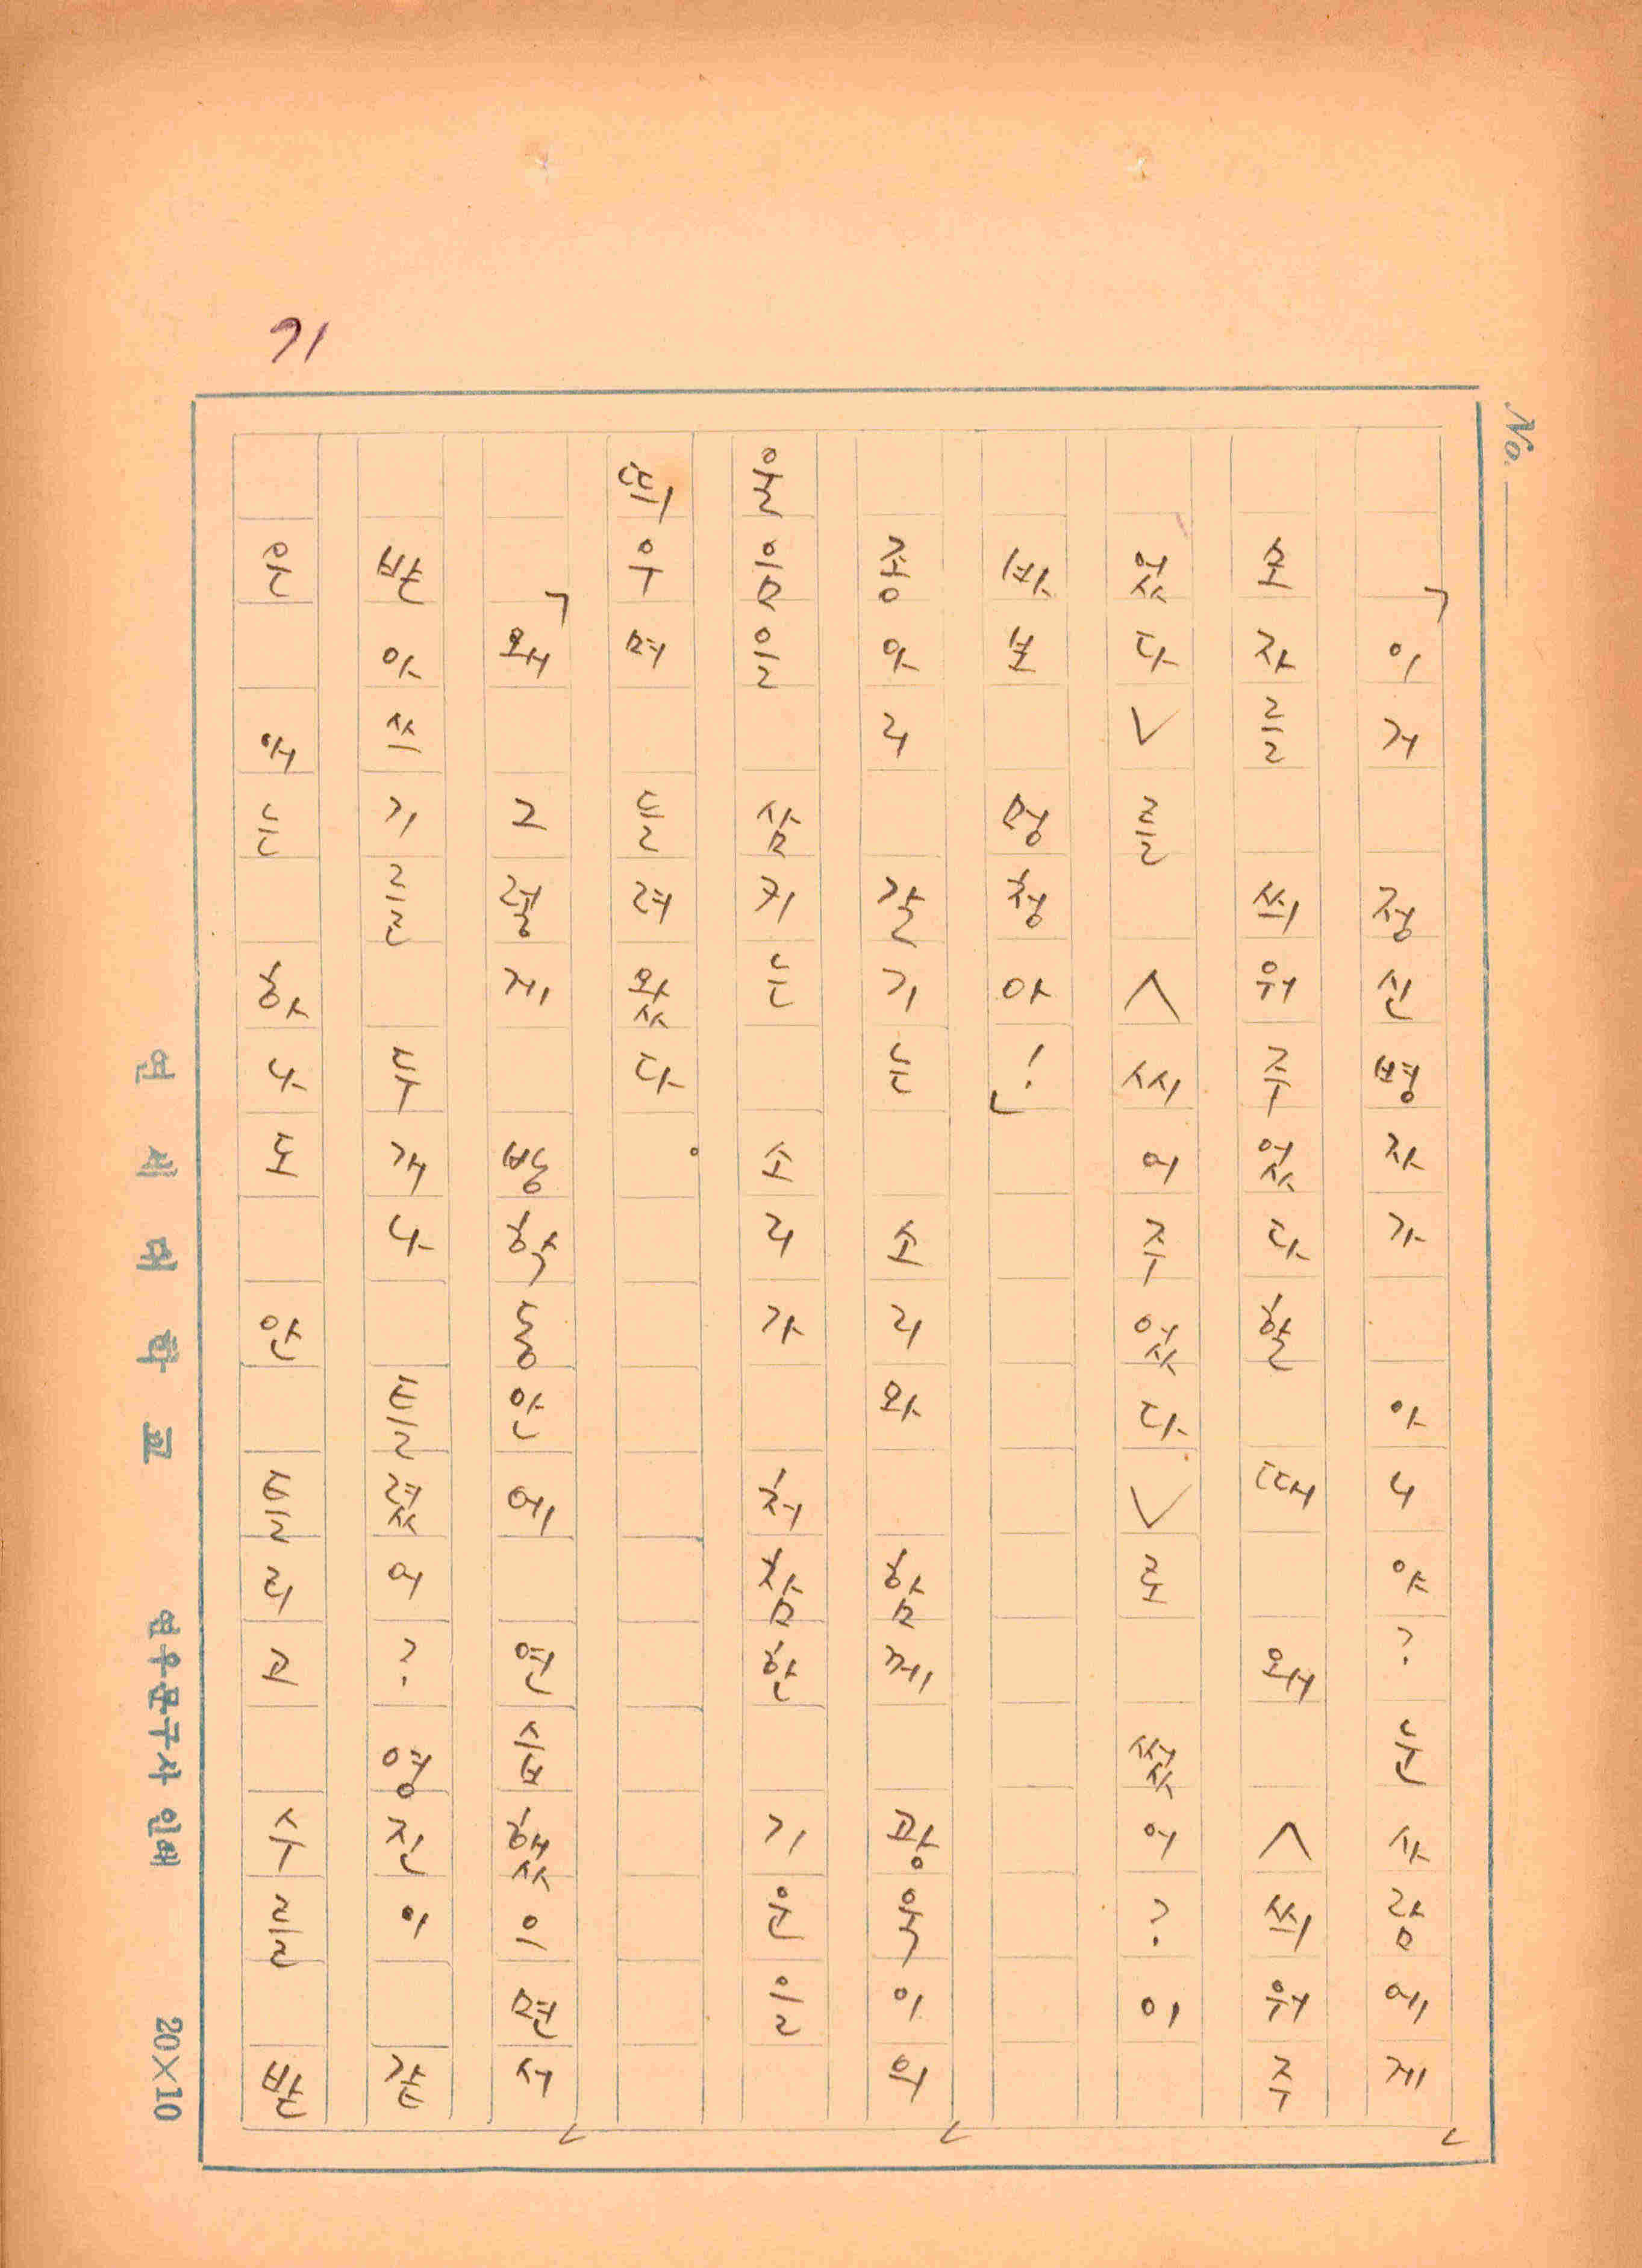 「이거 정신병자가 아니야? 눈사람에게
모자를 씌워주었다 한 대 왜 ∧씌워주
었다∨를 ∧씨어주었다∨로 썼어? 이
바보 멍청아!」
종아리 갈기는 소리와 함께 광욱이의
울음을 삼키는 소리가 처참한 기운을
띄우며 들려왔다。
「왜 그렇게 방학동안에 연습했으면서
받아쓰기를 두개나 틀렸어? 영진이 같
은 애는 하나도 안 틀리고 수를 받
71
No.
연세대학교 연우문구사 인쇄 20×10